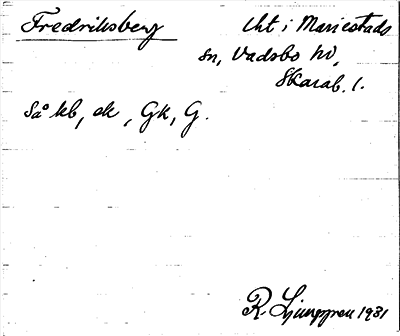 Fredriksberg
lht i Mariestads
sn, Vadsbo hd,
Skarab. l.
Så kb, ek, Gk, G.
R. Ljunggren 1931